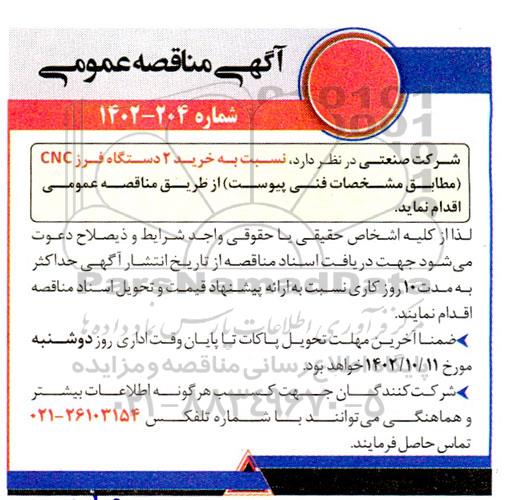 آگهی مناقصه عمومی
شماره ۲۰۴-۱۴۰۲
شرکت صنعتی در نظر دارد، نسبت به خرید ۲ دستگاه فرز CNC
(مطابق مشخصات فنی پیوست) از طریق مناقصه عمومی
اقدام نماید.
لذا از کلیه اشخاص حقیقی یا حقوقی واجد شرایط و ذیصلاح دعوت
می‌شود جهت دریافت اسناد مناقصه از تاریخ انتشار آگهی حداکثر
به مدت ۱۰ روز کاری نسبت به ارائه پیشنهاد قیمت و تحویل اسناد مناقصه
اقدام نمایند.
ضمنا آخرین مهلت تحویل پاکات تا پایان وقت اداری روز دوشنبه
مورخ ۱۴۰۲/۱۰/۱۱ خواهد بود.
شرکت کنندگان جهت کسب هرگونه اطلاعات بیشتر
و هماهنگی می‌توانند با شماره تلفکس ۲۶۱۰۳۱۵۴-۰۲۱
تماس حاصل فرمایند.
ParsNamadData
مرکز فرآوری اطلاعات پارس نماد داده ها
پایگاه اطلاع رسانی مناقصه و مزایده
۰۲۱-۸۸۳۴۹۶۷۰-۵